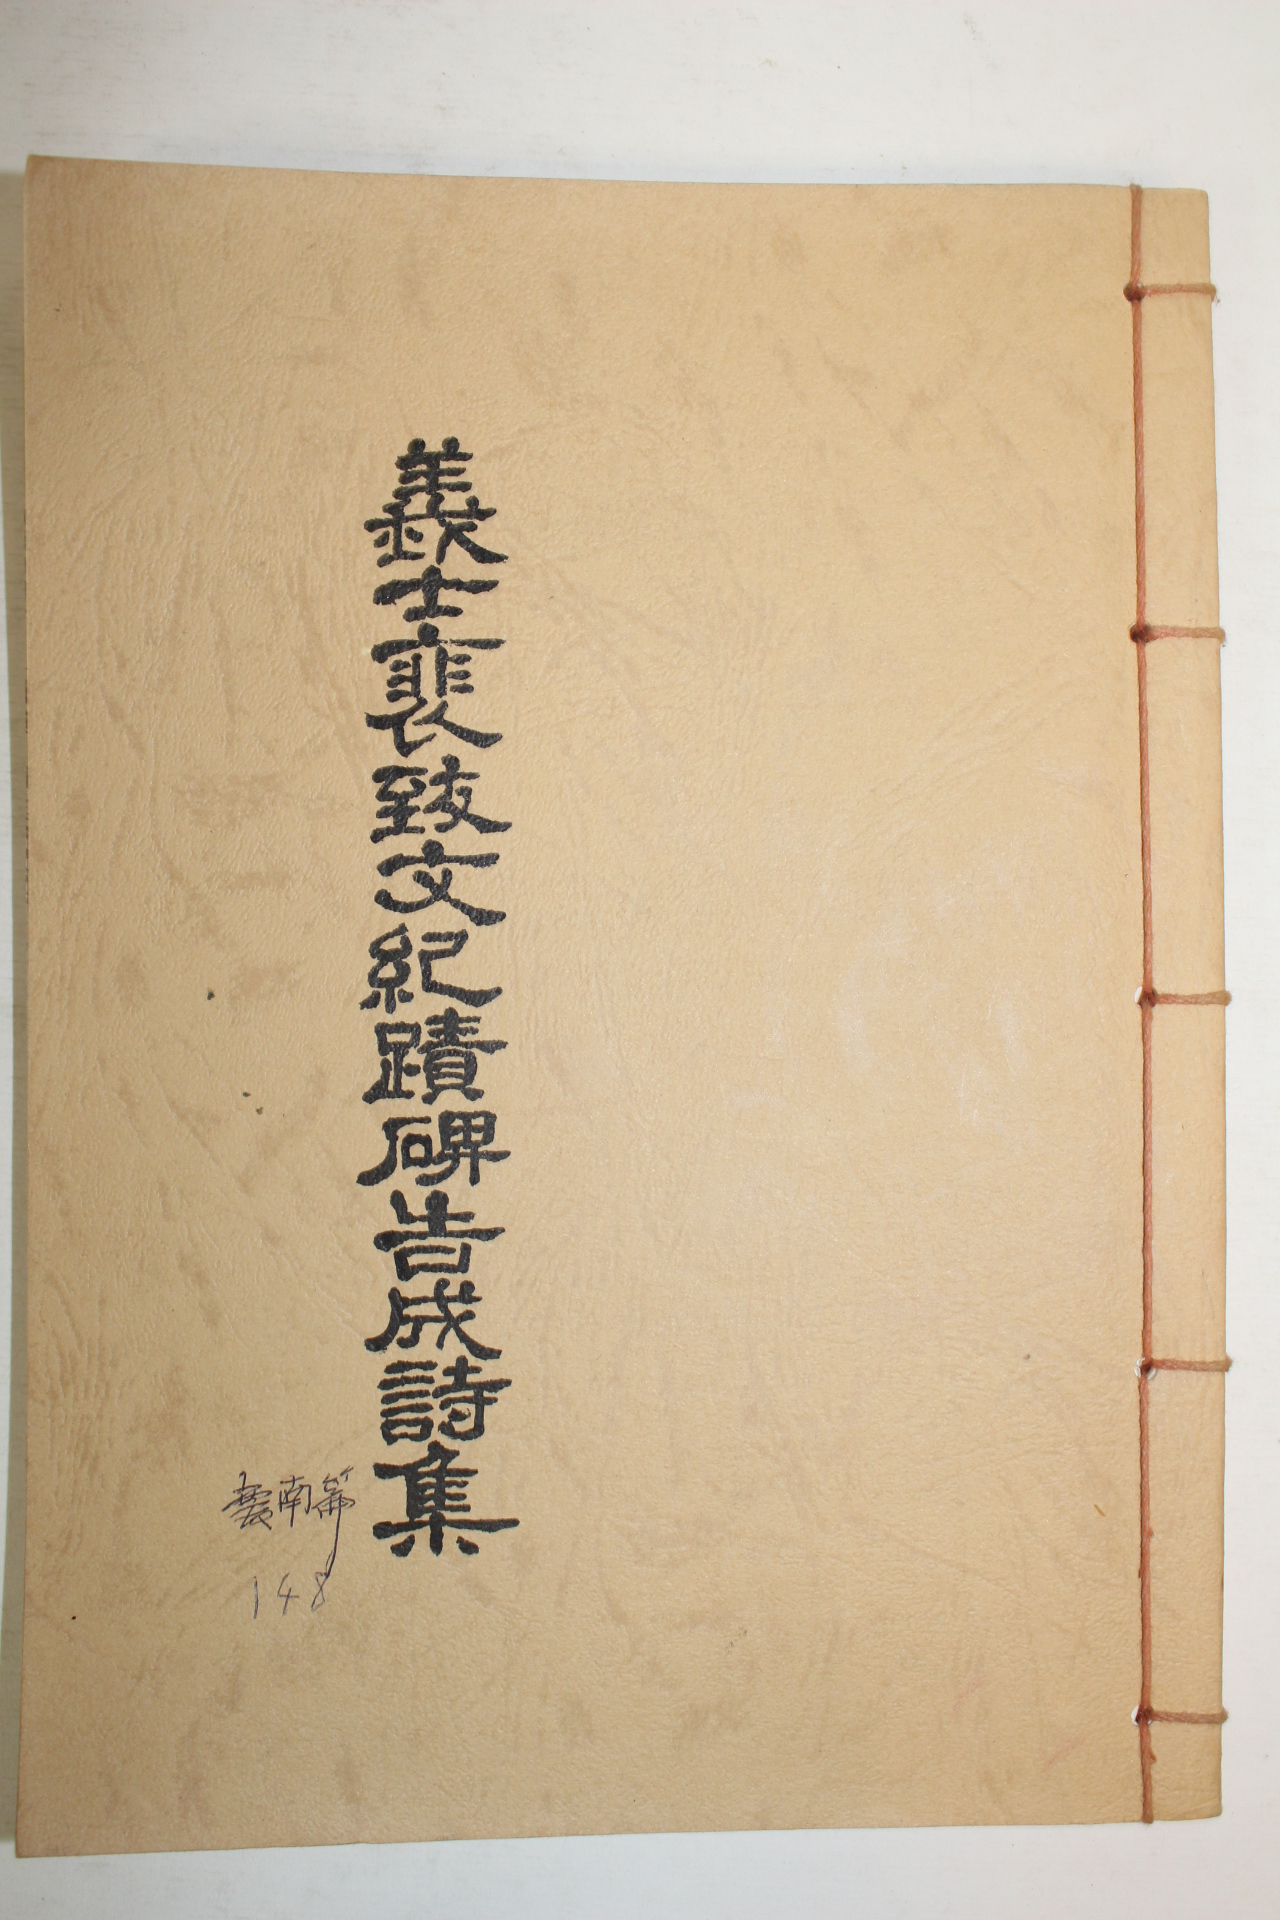 義士裵致文紀蹟碑告成詩集
雲南篇
148